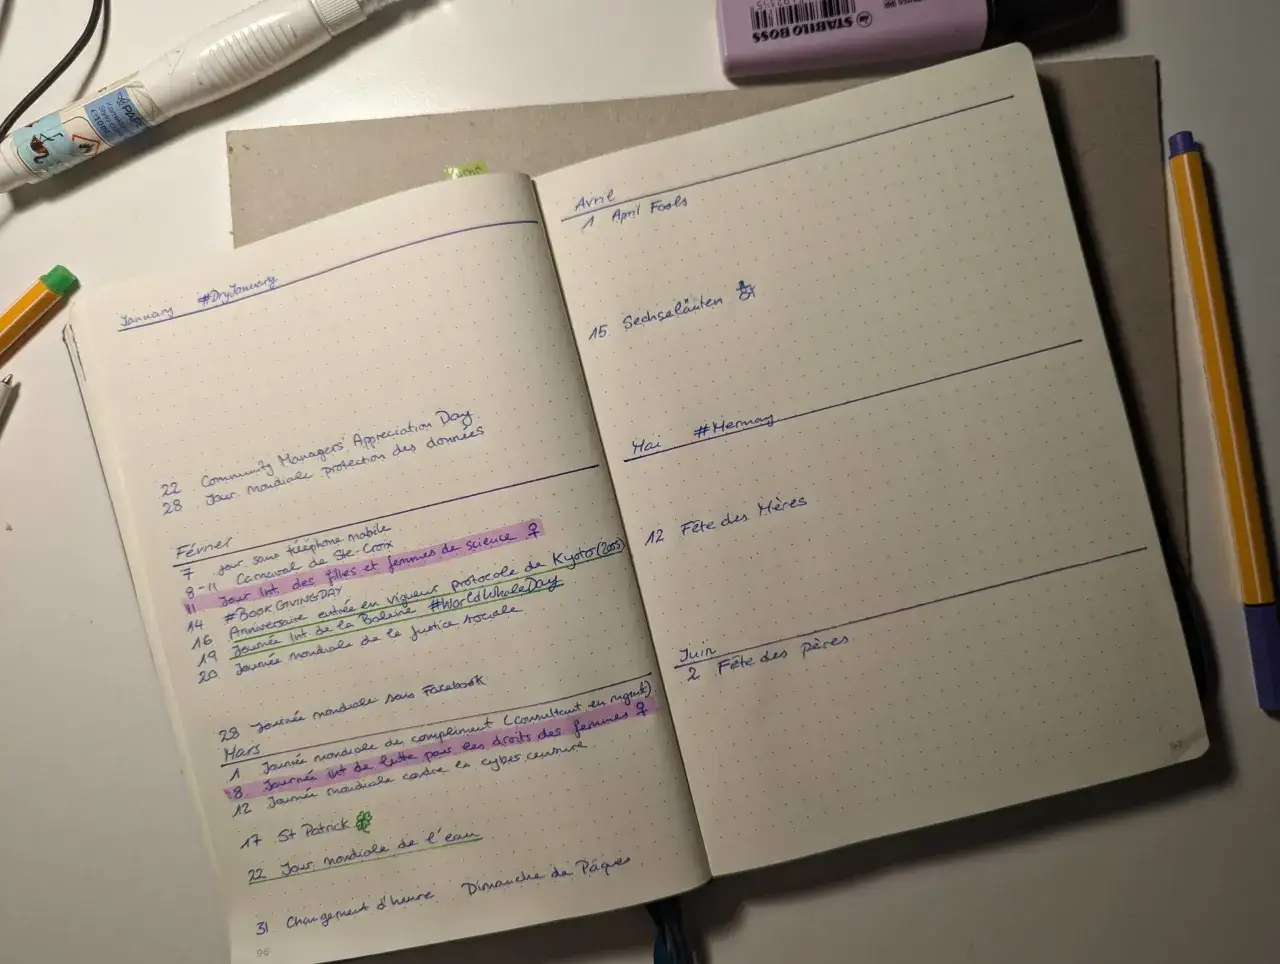 January #DryJanuary
22 Community Managers' Appreciation Day
28 Jour mondiale protection des données
Février
7 Jour sans téléphone mobile
8-11 Carnaval de Ste-Croix
11 Jour Int. des filles et femmes de science ♀
14 #BOOKGIVINGDAY
16 Anniversaire entrée en vigueur protocole de Kyoto (2005)
19 Journée Int de la Baleine #WorldWhaleDay
20 Journée mondiale de la justice sociale
28 Journée mondiale sans Facebook
Mars
1 Journée mondiale du compliment (consultant en mgmt)
8. Journée int de lutte pour les droits des femmes ♀
12 Journée mondiale contre la cyber censure
17 St Patrick
22 Jour mondiale de l'eau
31 Changement d'heure Dimanche de Pâques
96
Avril
1 April Fools
15. Sechseläuten
Mai #Mermay
12 Fête des Mères
Juin
2 Fête des pères
97
STABILO BOSS